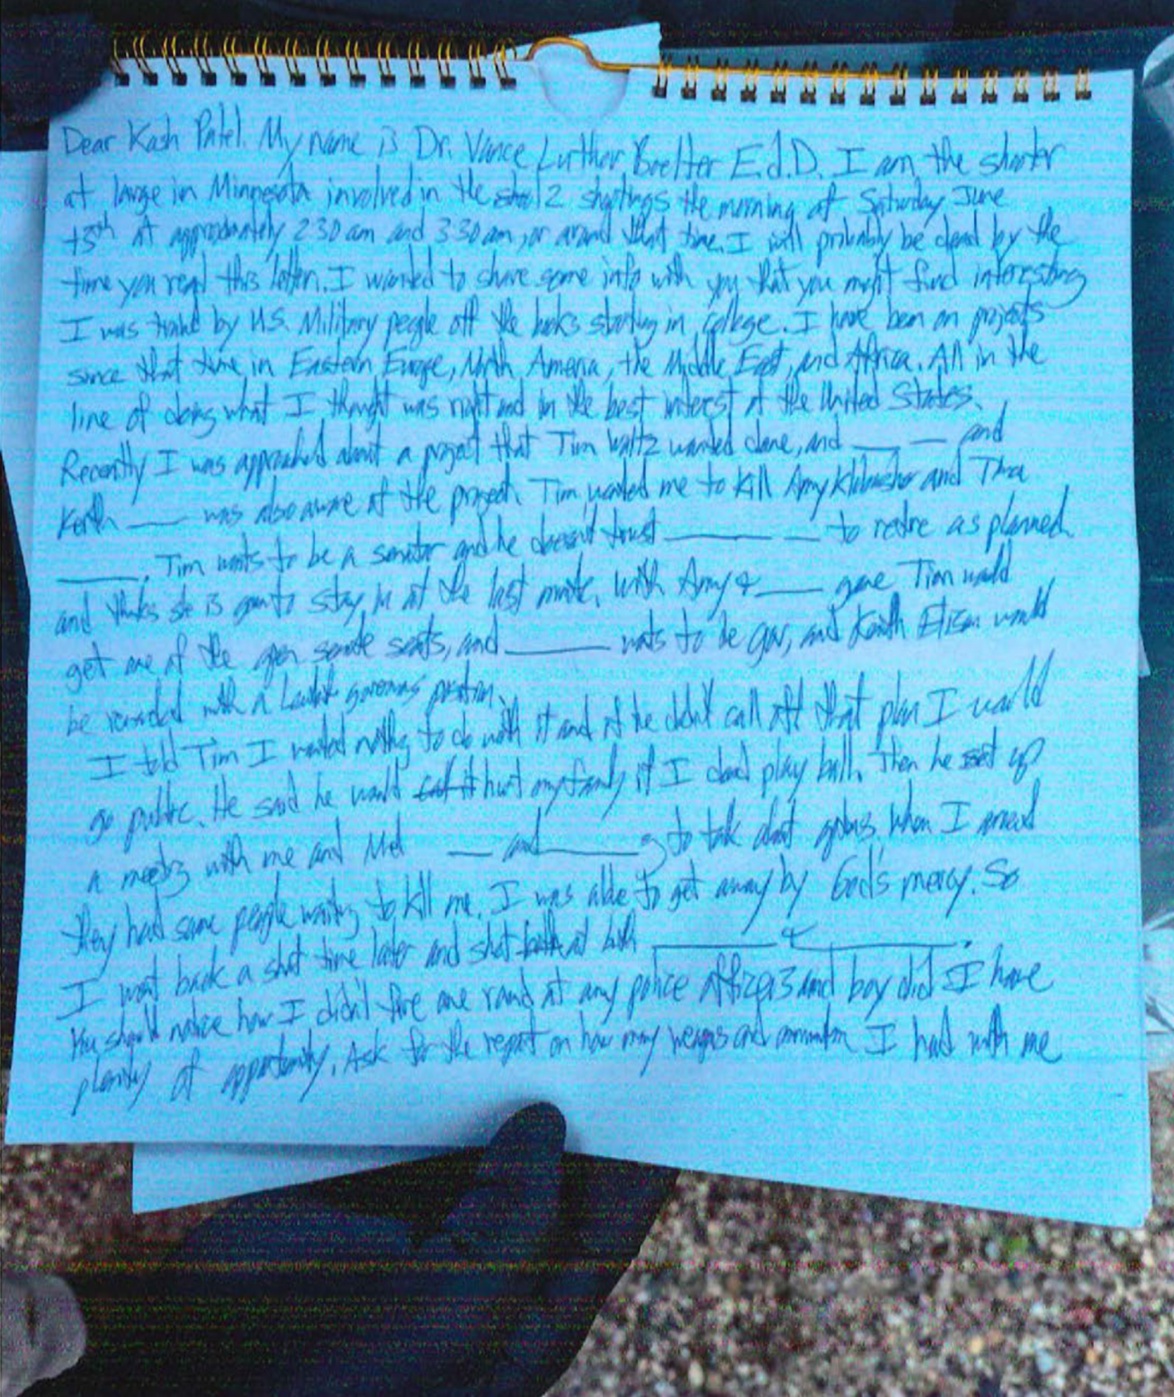 Dear Kash Patel. My name is Dr. Vance Luther Boelter E.d.D. I am the shooter
at large in Minnesota involved in the 2 shootings the morning of Saturday June
15th at approximately 2:30 am and 3:30 am, or around that time. I will probably be dead by the
time you read this letter. I wanted to share some info with you that you might find interesting
I was by U.S. Military people off the books starting in college. I have been on projects
since that time in Eastern Europe, North America, the Middle East, and Africa. All in the
line of doing what I thought was right and in the best interest of the United States.
Recently I was approached about a project that Tim Waltz wanted done, and ___ __ and
Keith ___ was also aware of the project. Tim wanted me to kill Amy and
____. Tim wants to be a senator and he doesn't trust ____ __ to retire as planned.
and thinks she is to stay in at the last minute. With Amy & ___ gone Tim would
get one of the open senate seats, and _____ wants to be gov, and Keith would
be rewarded with a position.
I told Tim I wanted nothing to do with it and if he didn't call off that plan I would
go public. He said he would hurt my family if I play ball. Then he set up
a meeting with me and __ and _____ to talk about. When I arrived
they had some people waiting to kill me. I was able to get away by God's mercy. So
I went back a short time later and shot at both _____ & _____.
You should notice how I didn't fire one round at any police officers and boy did I have
plenty of opportunity. Ask for the report on how many weapons and I had with me